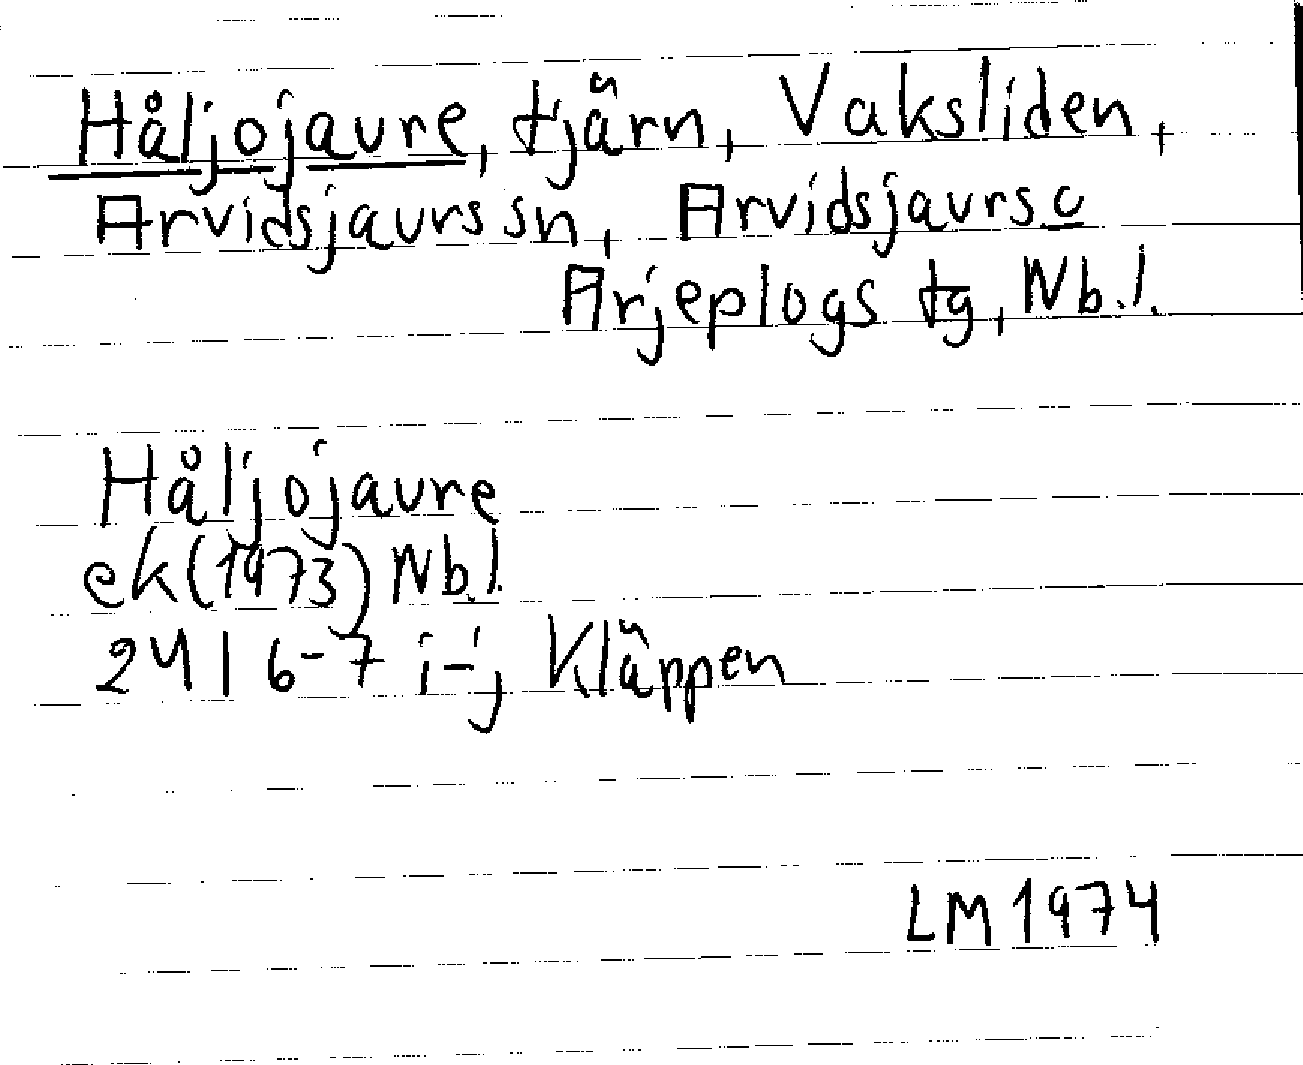 Håljojaure, tjärn, Vaksliden,
Arvidsjaurs sn, Arvidsjaurs o
Arjeplogs tg, Nb.l.
Håljojaure
ek(1973) Nb.l.
24 I 6-7 i-j, Kläppen
LM 1974